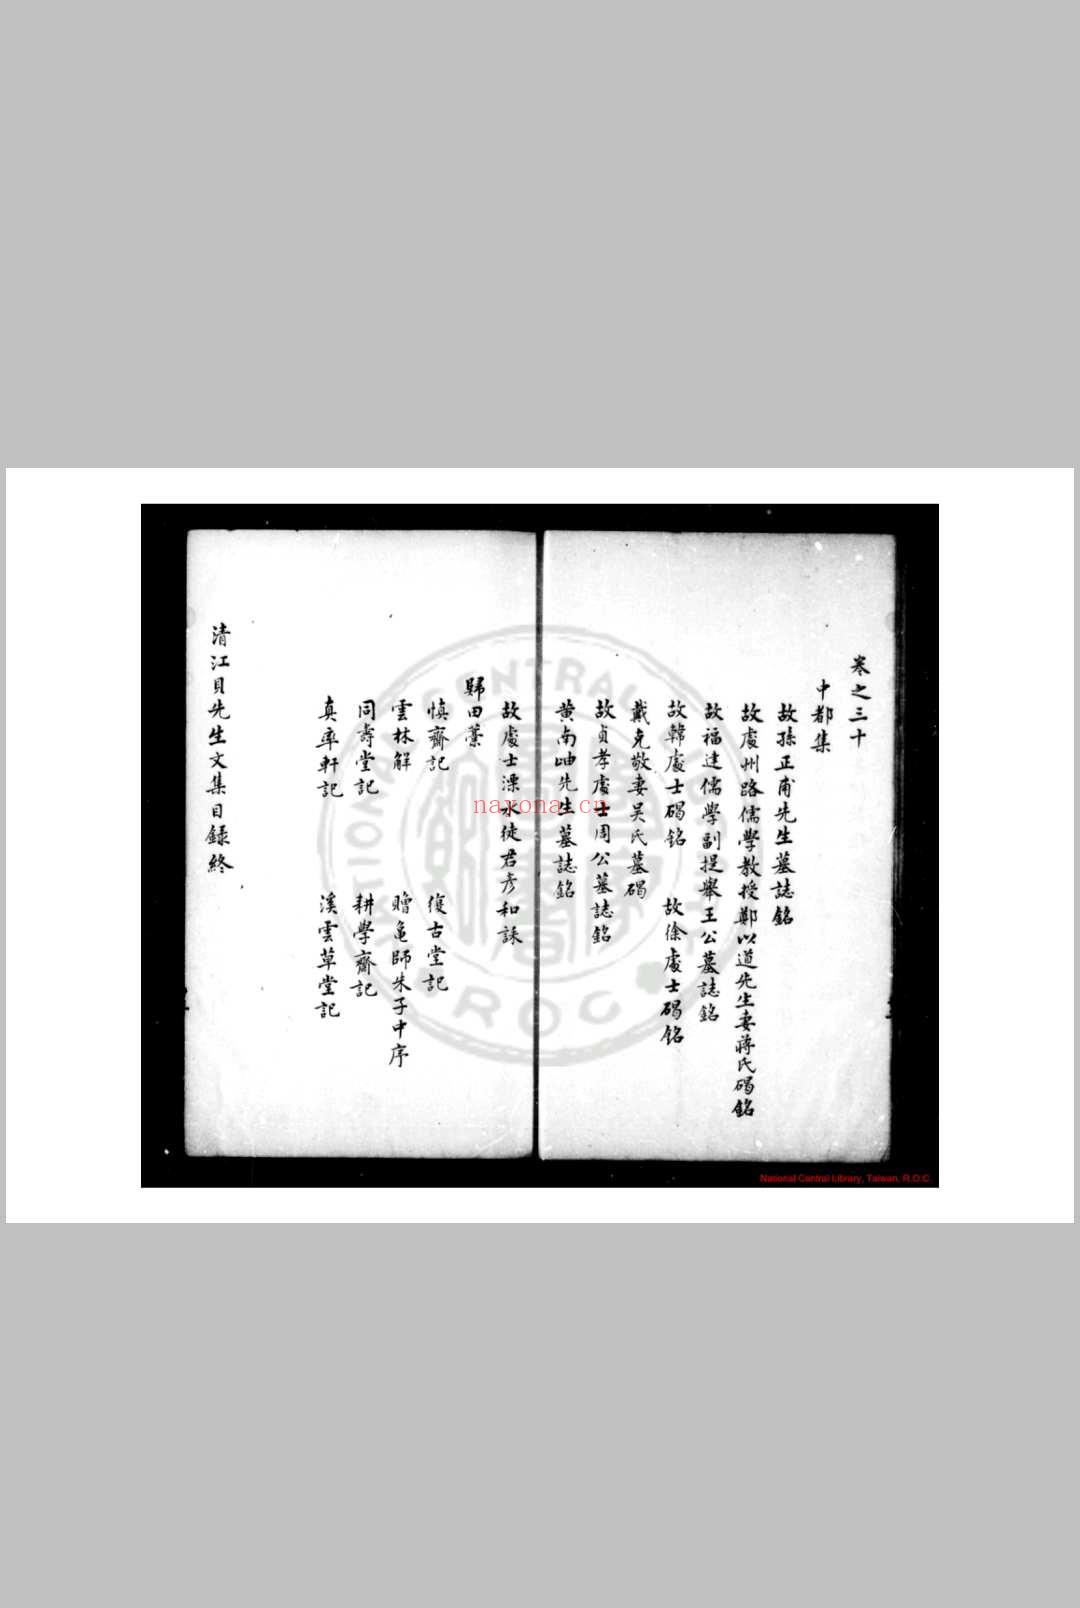 卷之三十
中都集
故孫正甫先生墓誌銘
故處州路儒學教授鄭以道先生妻蔣氏碣銘
故福建儒學副提舉王公墓誌銘
故韓處士碣銘 故徐處士碣銘
戴克敬妻吴氏墓碣
故貞孝處士周公墓誌銘
黄南岫先生墓誌銘
故處士溧水徒君彦和誄
歸田藁
慎齋記 復古堂記
雲林解 贈龜師朱子中序
同壽堂記 耕學齋記
真率軒記 溪雲草堂記
清江貝先生文集目録終
nayona.cn
NATIONAL CENTRAL LIBRARY
R.O.C
National Central Library, Taiwan, R.O.C.